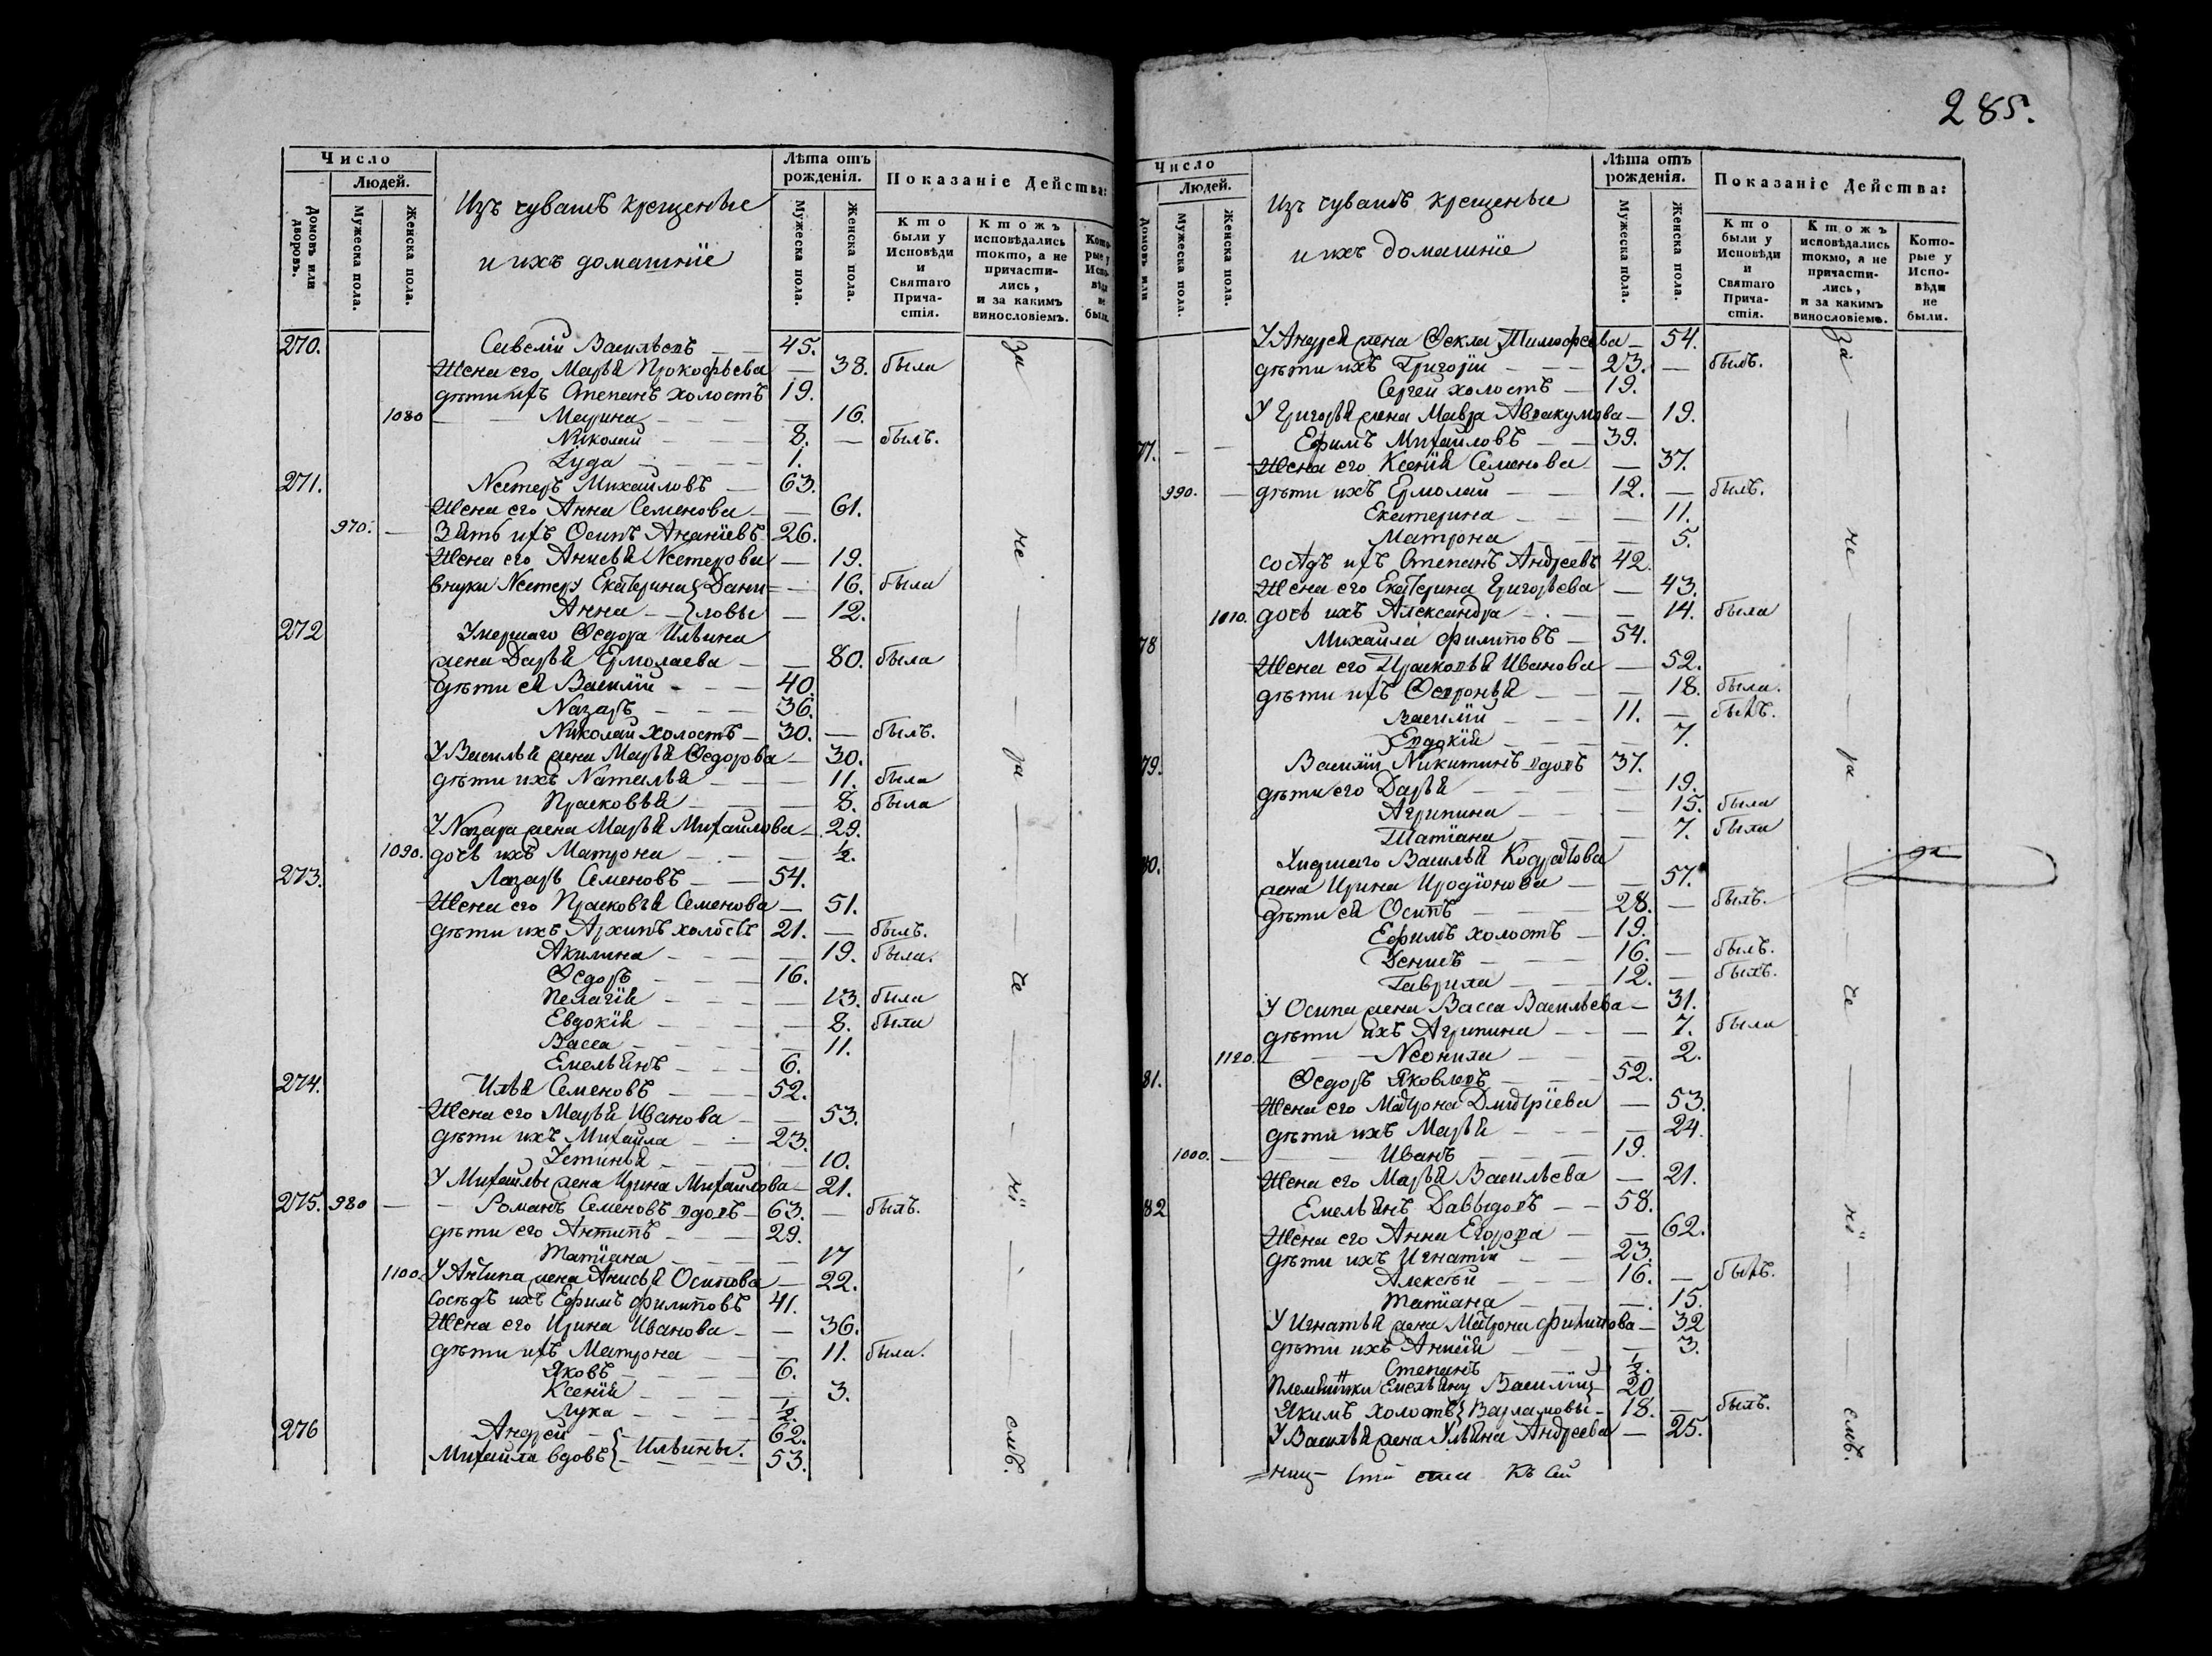 285.
Число
Людей.
Домовъ или дворовъ.
Мужеска пола.
Женска пола.
Изъ чувашъ крещеные
и ихъ домашнïе
Лѣта отъ рожденія.
Мужеска пола.
Женска пола.
Показаніе Действа:
Кто были у Исповѣди и Святаго Причастія.
Ктожъ исповѣдались токмо, а не причастились, и за какимъ винословіемъ.
Которые у Исповѣди не были.
270. Савелïй Васильевъ — 45.
Жена его Марья Прокофьева — 38. была
дѣти ихъ Степанъ холостъ 19.
1080 — Марина — 16.
Николай — 8. — былъ.
Iуда — 1.
271. Нестеръ Михайловъ — 63.
Жена его Анна Семенова — 61.
970. — Зять ихъ Осипъ Ананïевъ 26.
Жена его Анисья Нестерова — 19.
внуки Нестеру Екатерина Дани= — 16. была
Анна — ловы — 12.
272 Умершаго Ѳедора Ильина
жена Дарья Ермолаева — 80. была
дѣти ей Василïй — 40.
Назаръ — 36.
Николай холостъ — 30. — былъ.
У Василья жена Марья Ѳедорова — 30.
дѣти ихъ Наталья — 11. была
Прасковья — 8. была
У Назара жена Марья Михайлова — 29.
1090. дочь ихъ Матрона — ½.
273. Лазарь Семеновъ — 54.
Жена его Прасковья Семенова — 51.
дѣти ихъ Архипъ холостъ 21. — былъ.
Акилина — 19. была.
Ѳедоръ — 16.
Пелагïя — 13. была
Евдокïя — 8. была
Васса — 11.
Емельянъ — 6.
274. Илья Семеновъ — 52.
Жена его Марья Иванова — 53.
дѣти ихъ Михайла — 23.
Устинья — 10.
У Михайлы жена Ирина Михайлова — 21.
275. 980 — Романъ Семеновъ вдовъ — 63. — былъ.
дѣти его Антипъ — 29.
Татïана — 17
1100. У Антипа жена Анисья Осипова — 22.
Сосѣдъ ихъ Ефимъ Филиповъ 41.
Жена его Ирина Иванова — 36.
дѣти ихъ Матрона — 11. была.
Яковъ — 6.
Ксенïя — 3.
Лука — ½.
276 Андрей — 62.
Михайла вдовъ — Ильины. 53.
за — не — ра — че — нï — емъ.
Число
Людей.
Домовъ или
Мужеска пола.
Женска пола.
Изъ чувашъ крещеные
и ихъ домашнïе
Лѣта отъ рожденія.
Мужеска пола.
Женска пола.
Показаніе Действа:
Кто были у Исповѣди и Святаго Причастія.
Ктожъ исповѣдались токмо, а не причастились, и за какимъ винословіемъ.
Которые у Исповѣди не были.
У Андрея жена Ѳекла Тимофеева — 54.
дѣти ихъ Григорïй — 23. — былъ.
Сергей холостъ — 19.
У Григорья жена Мавра Авракумова — 19.
77. — Ефимъ Михайловъ — 39.
Жена его Ксенïя Семенова — 37.
990. — дѣти ихъ Ермолай — 12. — былъ.
Екатерина — 11.
Матрона — 5.
сосѣдъ ихъ Степанъ Андреевъ 42.
Жена его Екатерина Григорьева — 43.
1010. дочь ихъ Александра — 14. была
78 Михайла Филиповъ — 54.
Жена его Прасковья Иванова — 52.
дѣти ихъ Ѳевронья — 18. была.
Василïй — 11. — былъ.
Евдокïя — 7.
79. Василïй Никитинъ вдовъ 37.
дѣти его Дарья — 19.
Агрипина — 15. была
Татïана — 7. была
80. Умершаго Василья
жена Ирина Иродïонова — 57.
дѣти ей Осипъ — 28. — былъ.
Ефимъ холостъ — 19.
Денисъ — 16. — былъ.
Гаврила — 12. — былъ.
У Осипа жена Васса Васильева — 31.
дѣти ихъ Агрипина — 7. была
1120. — Неонила — 2.
81. Ѳедоръ Яковлевъ — 52.
Жена его Матрона Дмитрïева — 53.
дѣти ихъ Марья — 24.
1000. — Иванъ — 19.
Жена его Марья Васильева — 21.
82 Емельянъ Давыдовъ — 58.
Жена его Анна Егорова — 62.
дѣти ихъ Игнатïй — 23.
Алексѣй — 16. — былъ.
Татïана — 15.
У Игнатья жена Матрона Филипова — 32
дѣти ихъ Анисïя — 3.
Степанъ — ½.
Племянники Емельяну Василïй 20.
Якимъ холостъ Варламовы — 18. — былъ.
У Василья жена Ульяна Андреева — 25.
за — не — ра — че — нï — емъ.